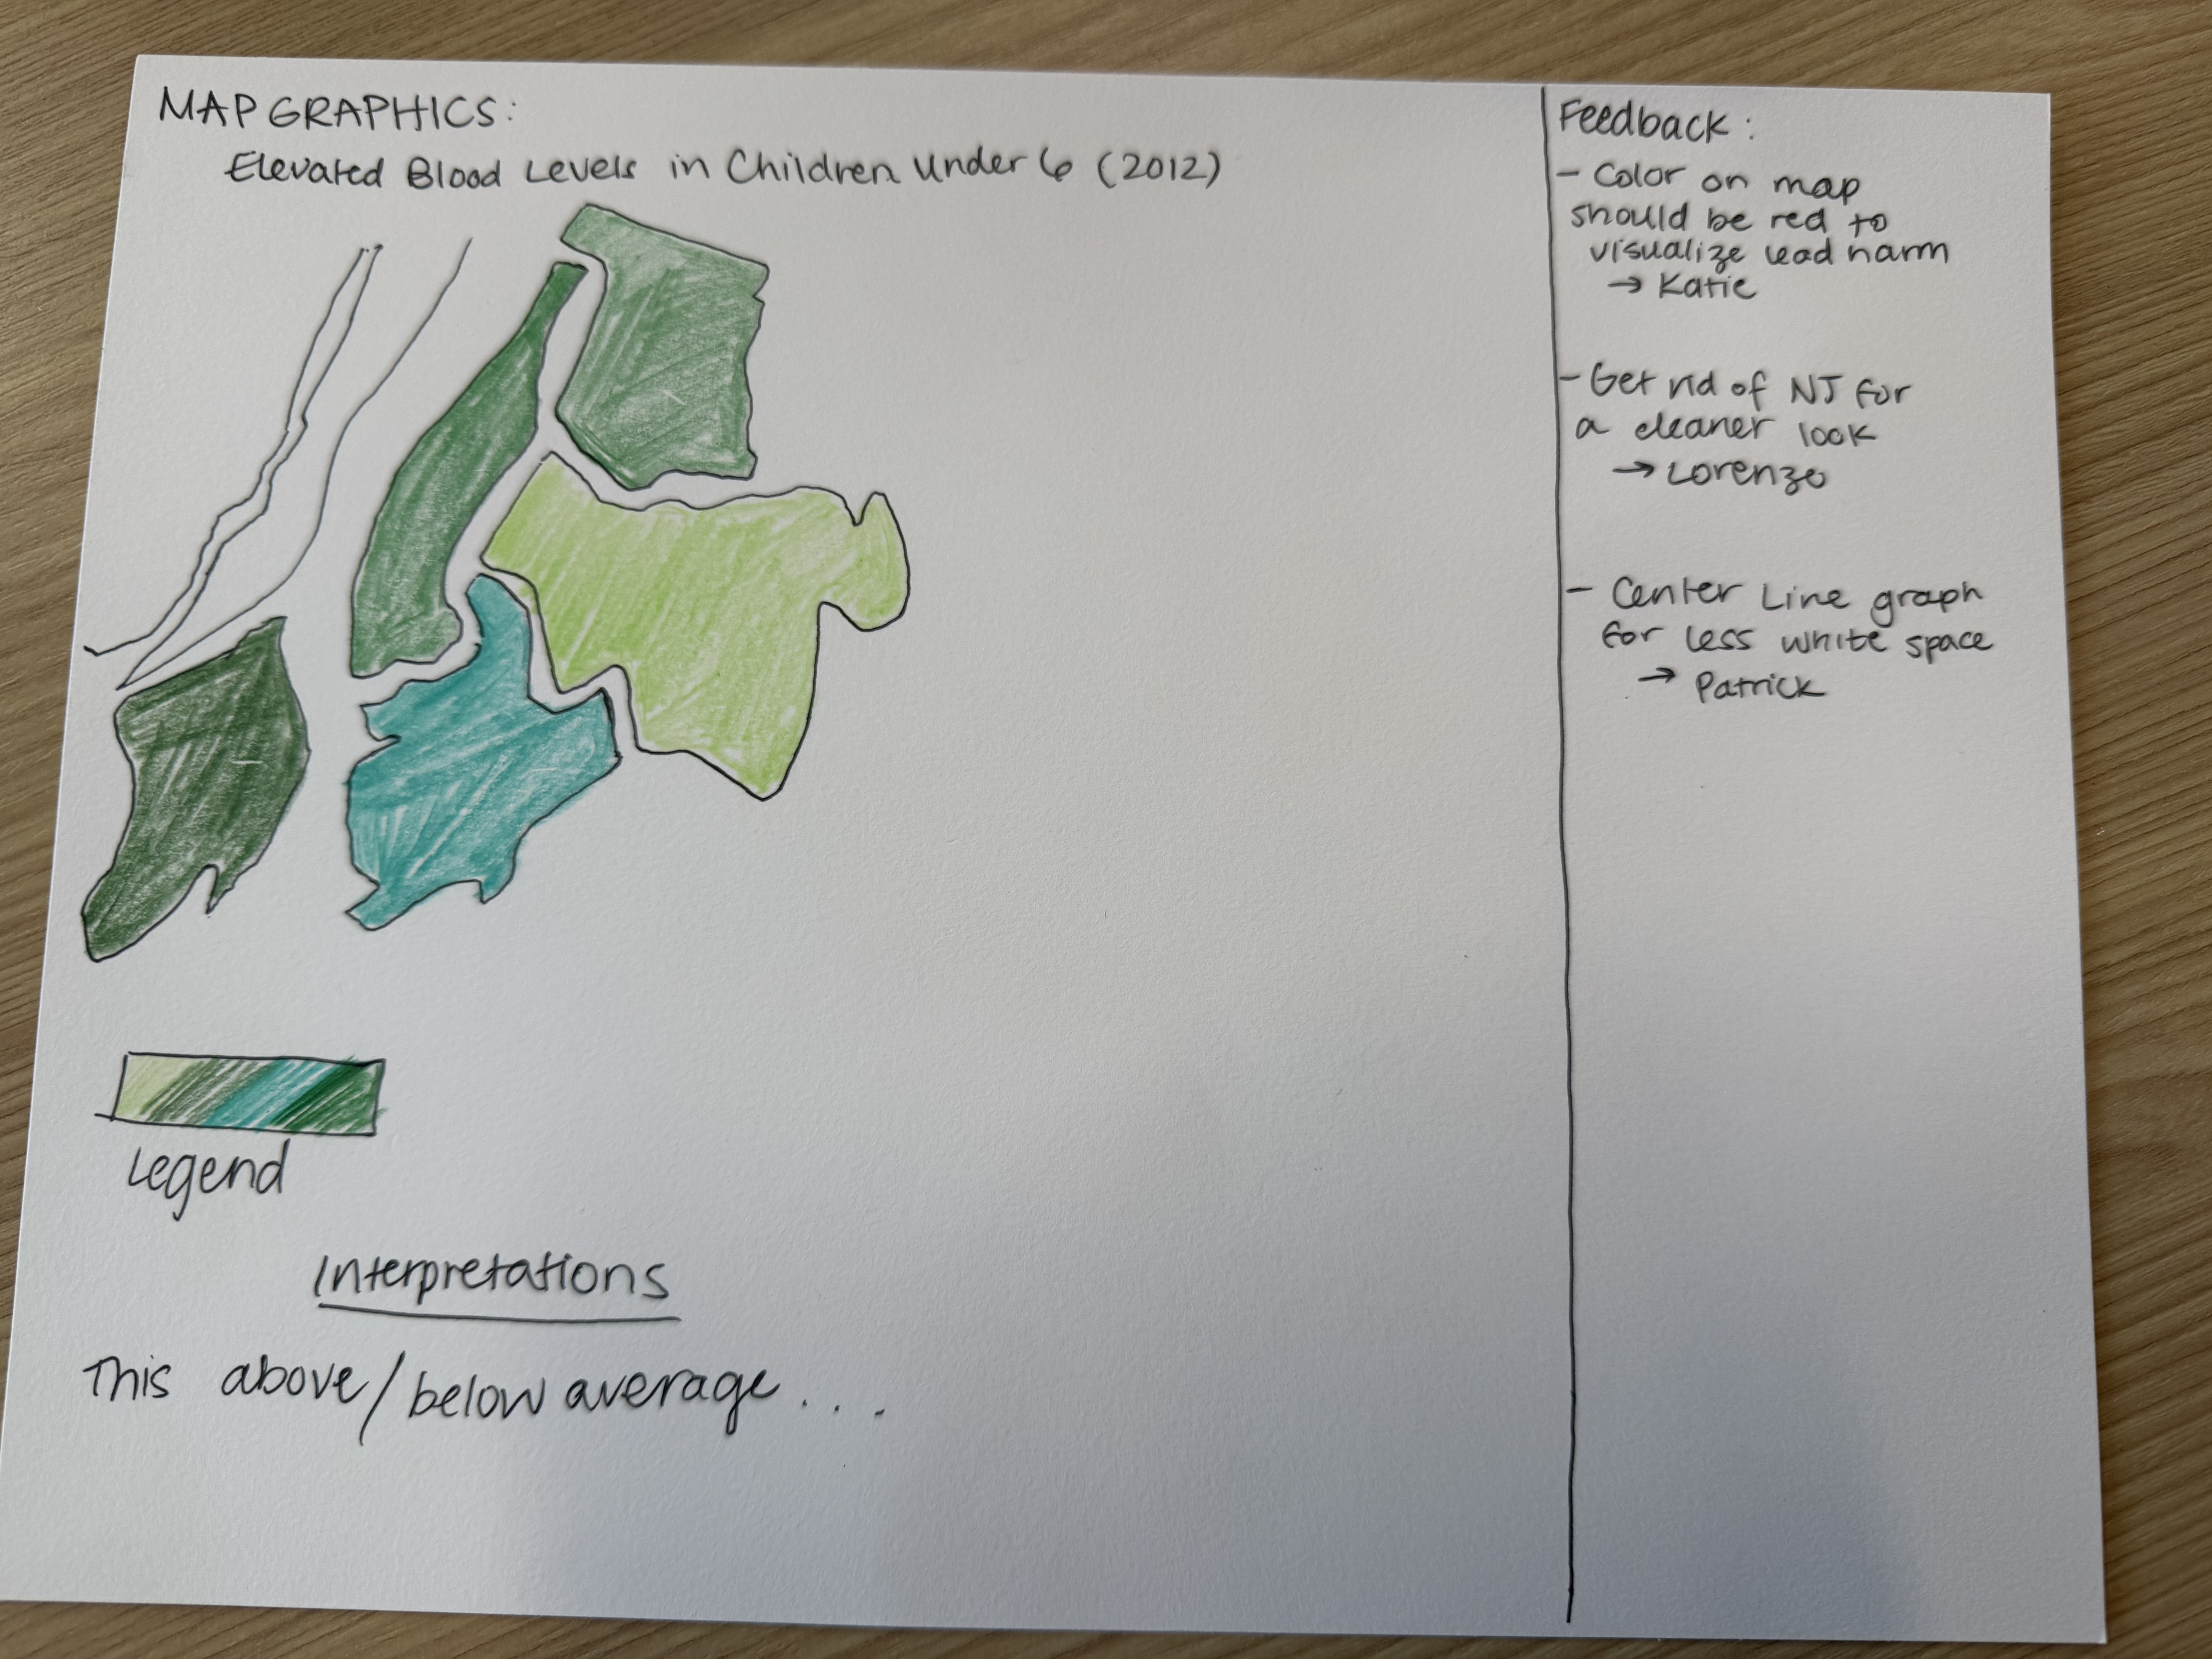 MAP GRAPHICS:
Elevated Blood Levels in Children Under 6 (2012)
Legend
Interpretations
This above/below average...
Feedback:
- Color on map
should be red to
visualize lead harm
→ Katie
- Get rid of NJ for
a cleaner look
→ Lorenzo
- Center Line graph
for less white space
→ Patrick